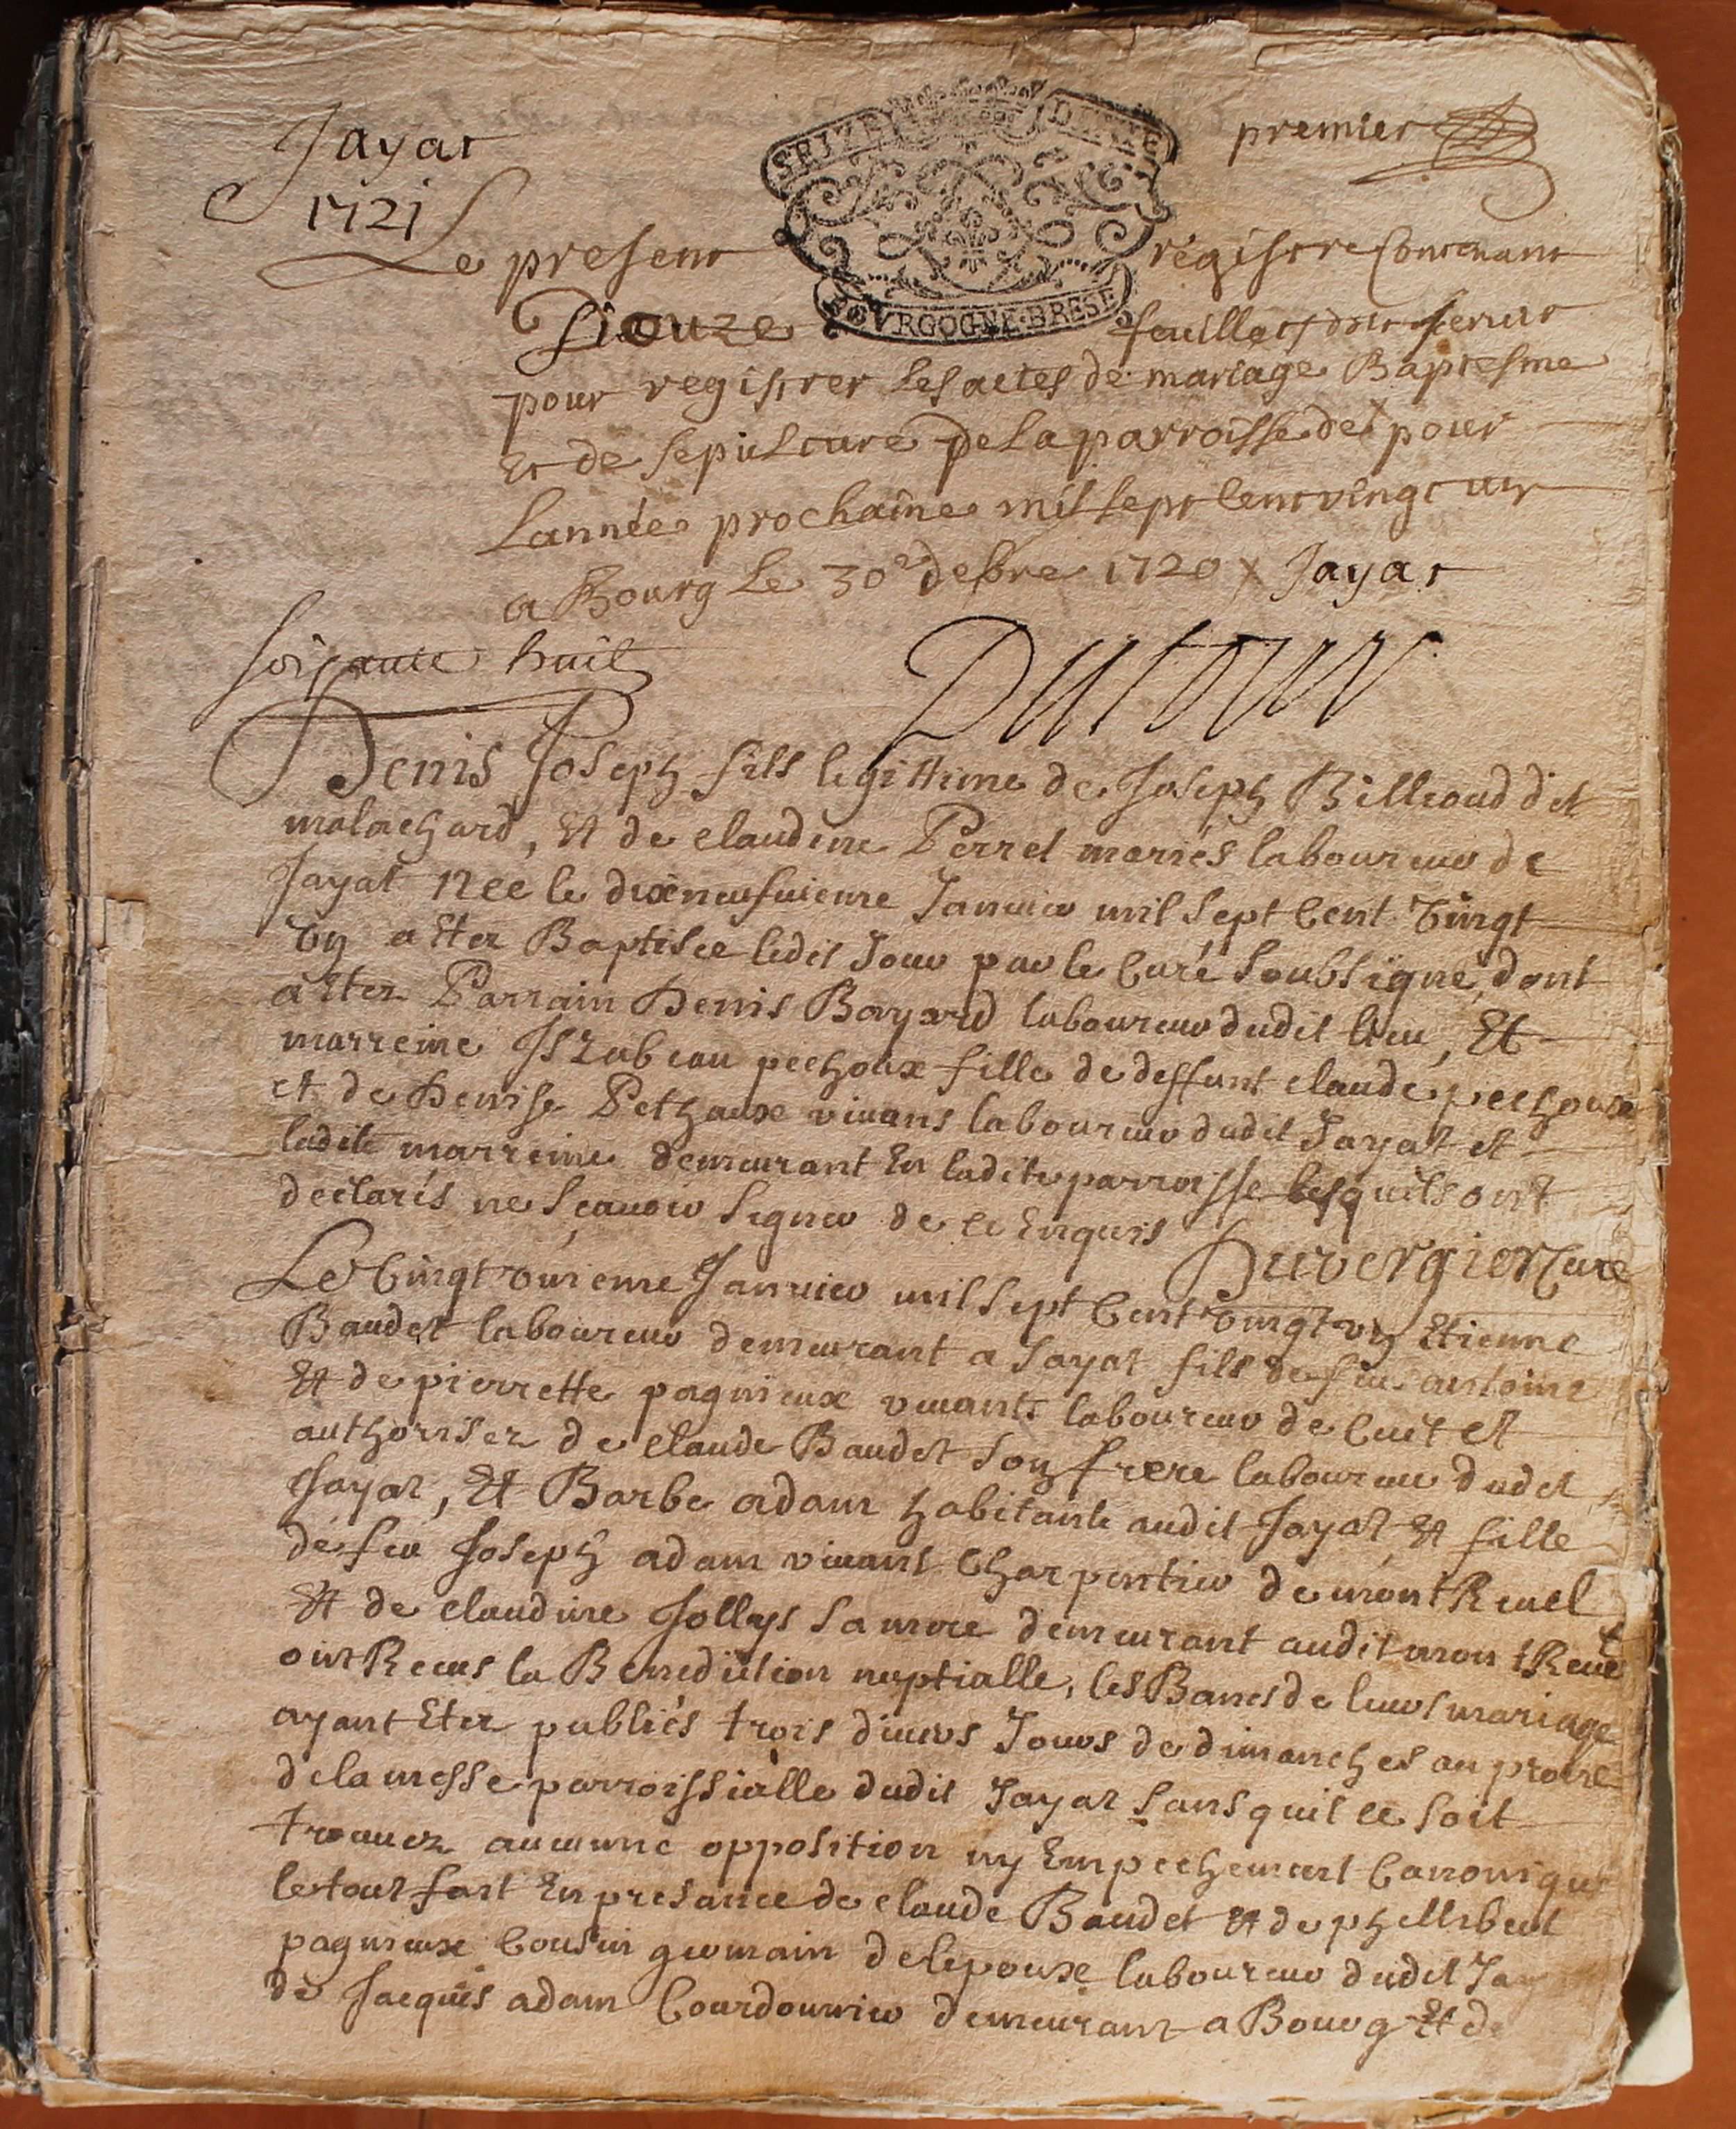 Jayat
premier
1721
SEIZE DENIE
Le present registre Contenant
BOVRGOGNE·BRESE
feuillets doit servir
pour registrer Les actes de mariage Baptesme
Et de sepulture de La parroisse de x pour
Lannée prochaine mil sept Cent vingt un
a Bourg Le 30e debre 1720 x Jayat
soixante huit
Dutour
Denis Joseph fils legittime de Joseph Billioud dit
malachard, Et de claudine Perret mariés laboureur de
Jayat née le dixneufuieme Januier mil sept Cent Vingt
Vn a Eter Baptisee ledit Jour par le Curé soubsigné, dont
a Eter Parrain Denis Bayard laboureur dudit lieu, Et
marreine Iszabeau pechoux fille de deffunt claude pechoux
et de Denise Pethaux viuans laboureur dudit Jayat et
ladite marreine demeurant En ladite parroisse lesquels ont
declarés ne sçauoir signer de ce Enquis Duvergier Curé
Le Vingt vnieme Januier mil sept Cent vingt vn Etienne
Baudet laboureur demeurant a Jayat fils de feu antoine
Et de pierrette pagnieux viuants laboureur de Cuet et
authoriser de claude Baudet son frere laboureur dudit
Jayat, Et Barbe adam habitante audit Jayat Et fille
de feu Joseph adam viuant Charpentier de montReuel
Et de claudine Jollys sa mere demeurant audit montReuel
ont Receus la Benediction nuptialle, les Bancs de leurs mariage
ayant Eter publiés trois diuers Jours de dimanches au prone
de la messe parroissialle dudit Jayat sans quil ce soit
trouuer aucunne opposition ny Empechement Canonique
le tout fait En presance de claude Baudet Et de phillibert
pagnieux Cousin germain de lepoux laboureur dudit Jay
de Jacques adam Courdonnier demeurant a Bourg Et de